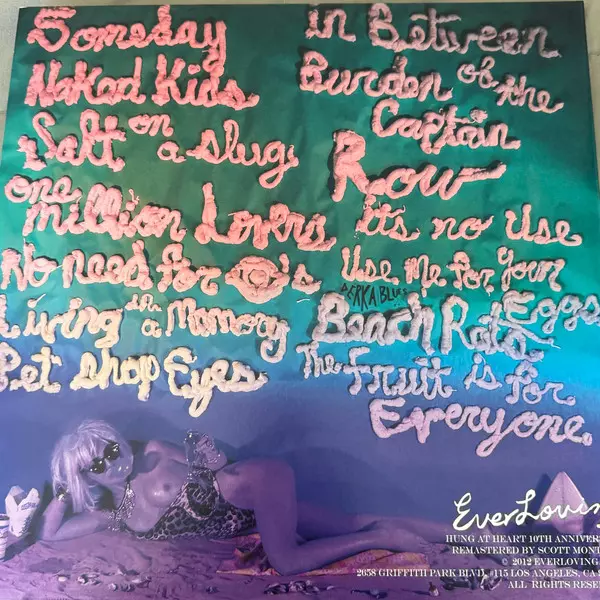 Someday
Naked Kids
Salt on a slug
one million Lovers
No need for 's
Living in a Memory
Pet shop Eyes
in Between
Burden of the Captain
Row
its no Use
Use Me for Your Eggs
Beach Rats
The Fruit is for Everyone.
EverLovin
HUNG AT HEART 10TH ANNIVER
REMASTERED BY SCOTT MONT
© 2012 EVERLOVING
2658 GRIFFITH PARK BLVD. #115 LOS ANGELES, CA
ALL RIGHTS RESE